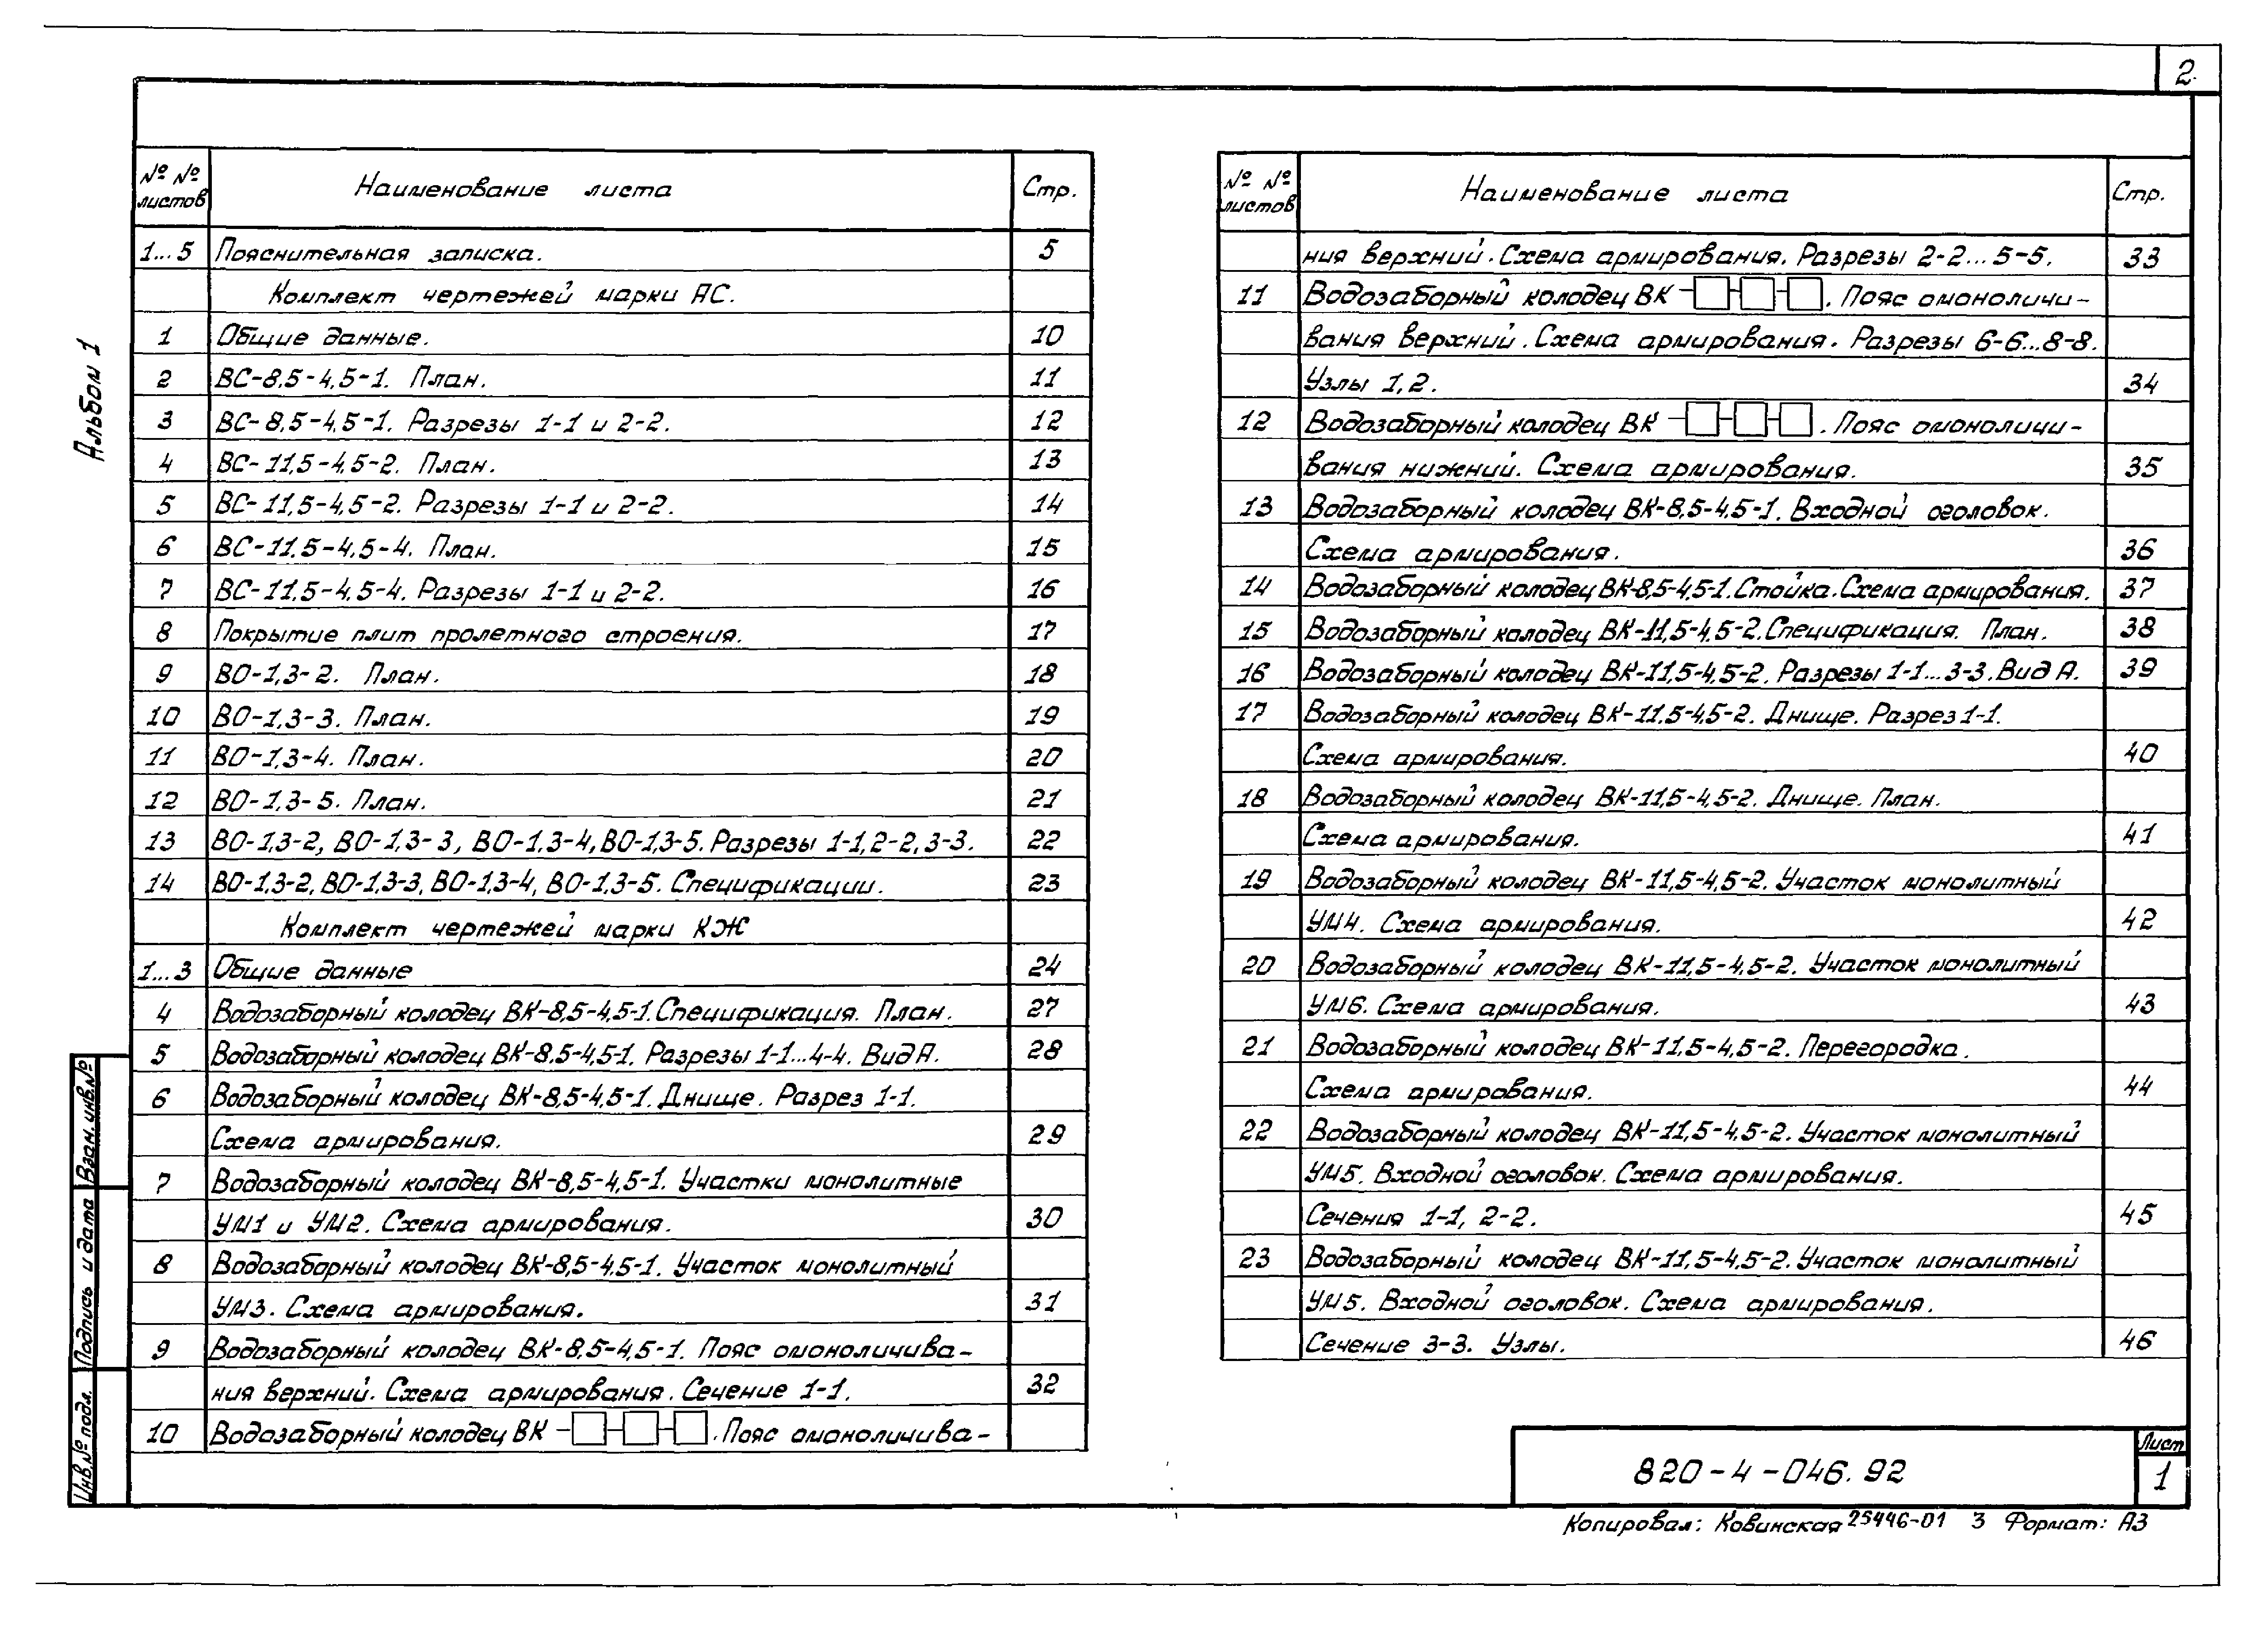 2
Альбом 1
№ № листов Наименование листа Стр.
1...5 Пояснительная записка. 5
Комплект чертежей марки АС.
1 Общие данные. 10
2 ВС-8,5-4,5-1. План. 11
3 ВС-8,5-4,5-1. Разрезы 1-1 и 2-2. 12
4 ВС-11,5-4,5-2. План. 13
5 ВС-11,5-4,5-2. Разрезы 1-1 и 2-2. 14
6 ВС-11,5-4,5-4. План. 15
7 ВС-11,5-4,5-4. Разрезы 1-1 и 2-2. 16
8 Покрытие плит пролетного строения. 17
9 ВО-1,3-2. План. 18
10 ВО-1,3-3. План. 19
11 ВО-1,3-4. План. 20
12 ВО-1,3-5. План. 21
13 ВО-1,3-2, ВО-1,3-3, ВО-1,3-4, ВО-1,3-5. Разрезы 1-1, 2-2, 3-3. 22
14 ВО-1,3-2, ВО-1,3-3, ВО-1,3-4, ВО-1,3-5. Спецификации. 23
Комплект чертежей марки КЖ
1...3 Общие данные 24
4 Водозаборный колодец ВК-8,5-4,5-1. Спецификация. План. 27
5 Водозаборный колодец ВК-8,5-4,5-1. Разрезы 1-1...4-4. Вид А. 28
6 Водозаборный колодец ВК-8,5-4,5-1. Днище. Разрез 1-1.
Схема армирования. 29
7 Водозаборный колодец ВК-8,5-4,5-1. Участки монолитные
УМ1 и УМ2. Схема армирования. 30
8 Водозаборный колодец ВК-8,5-4,5-1. Участок монолитный
УМ3. Схема армирования. 31
9 Водозаборный колодец ВК-8,5-4,5-1. Пояс омоноличива-
ния верхний. Схема армирования. Сечение 1-1. 32
10 Водозаборный колодец ВК -□-□-□. Пояс омоноличива-
№ № листов Наименование листа Стр.
ния верхний. Схема армирования. Разрезы 2-2...5-5. 33
11 Водозаборный колодец ВК -□-□-□. Пояс омоноличи-
вания верхний. Схема армирования. Разрезы 6-6...8-8.
Узлы 1,2. 34
12 Водозаборный колодец ВК -□-□-□. Пояс омоноличи-
вания нижний. Схема армирования. 35
13 Водозаборный колодец ВК-8,5-4,5-1. Входной оголовок.
Схема армирования. 36
14 Водозаборный колодец ВК-8,5-4,5-1. Стойка. Схема армирования. 37
15 Водозаборный колодец ВК-11,5-4,5-2. Спецификация. План. 38
16 Водозаборный колодец ВК-11,5-4,5-2. Разрезы 1-1...3-3. Вид А. 39
17 Водозаборный колодец ВК-11,5-4,5-2. Днище. Разрез 1-1.
Схема армирования. 40
18 Водозаборный колодец ВК-11,5-4,5-2. Днище. План.
Схема армирования. 41
19 Водозаборный колодец ВК-11,5-4,5-2. Участок монолитный
УМ4. Схема армирования. 42
20 Водозаборный колодец ВК-11,5-4,5-2. Участок монолитный
УМ6. Схема армирования. 43
21 Водозаборный колодец ВК-11,5-4,5-2. Перегородка.
Схема армирования. 44
22 Водозаборный колодец ВК-11,5-4,5-2. Участок монолитный
УМ5. Входной оголовок. Схема армирования.
Сечения 1-1, 2-2. 45
23 Водозаборный колодец ВК-11,5-4,5-2. Участок монолитный
УМ5. Входной оголовок. Схема армирования.
Сечение 3-3. Узлы. 46
Взам. инв. №
Подпись и дата
Инв. № подл.
820-4-046.92
Лист
1
Копировал: Ковинская 25446-01 3 Формат: А3